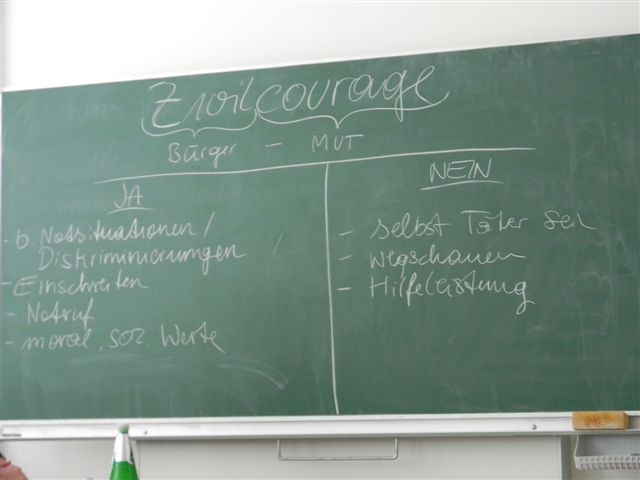 Zivilcourage
Bürger - MUT
JA
- b. Notsituationen /
Diskriminierungen
- Einschreiten
- Notruf
- moral., soz. Werte
NEIN
- selbst Täter sein
- wegschauen
- Hilfeleistung